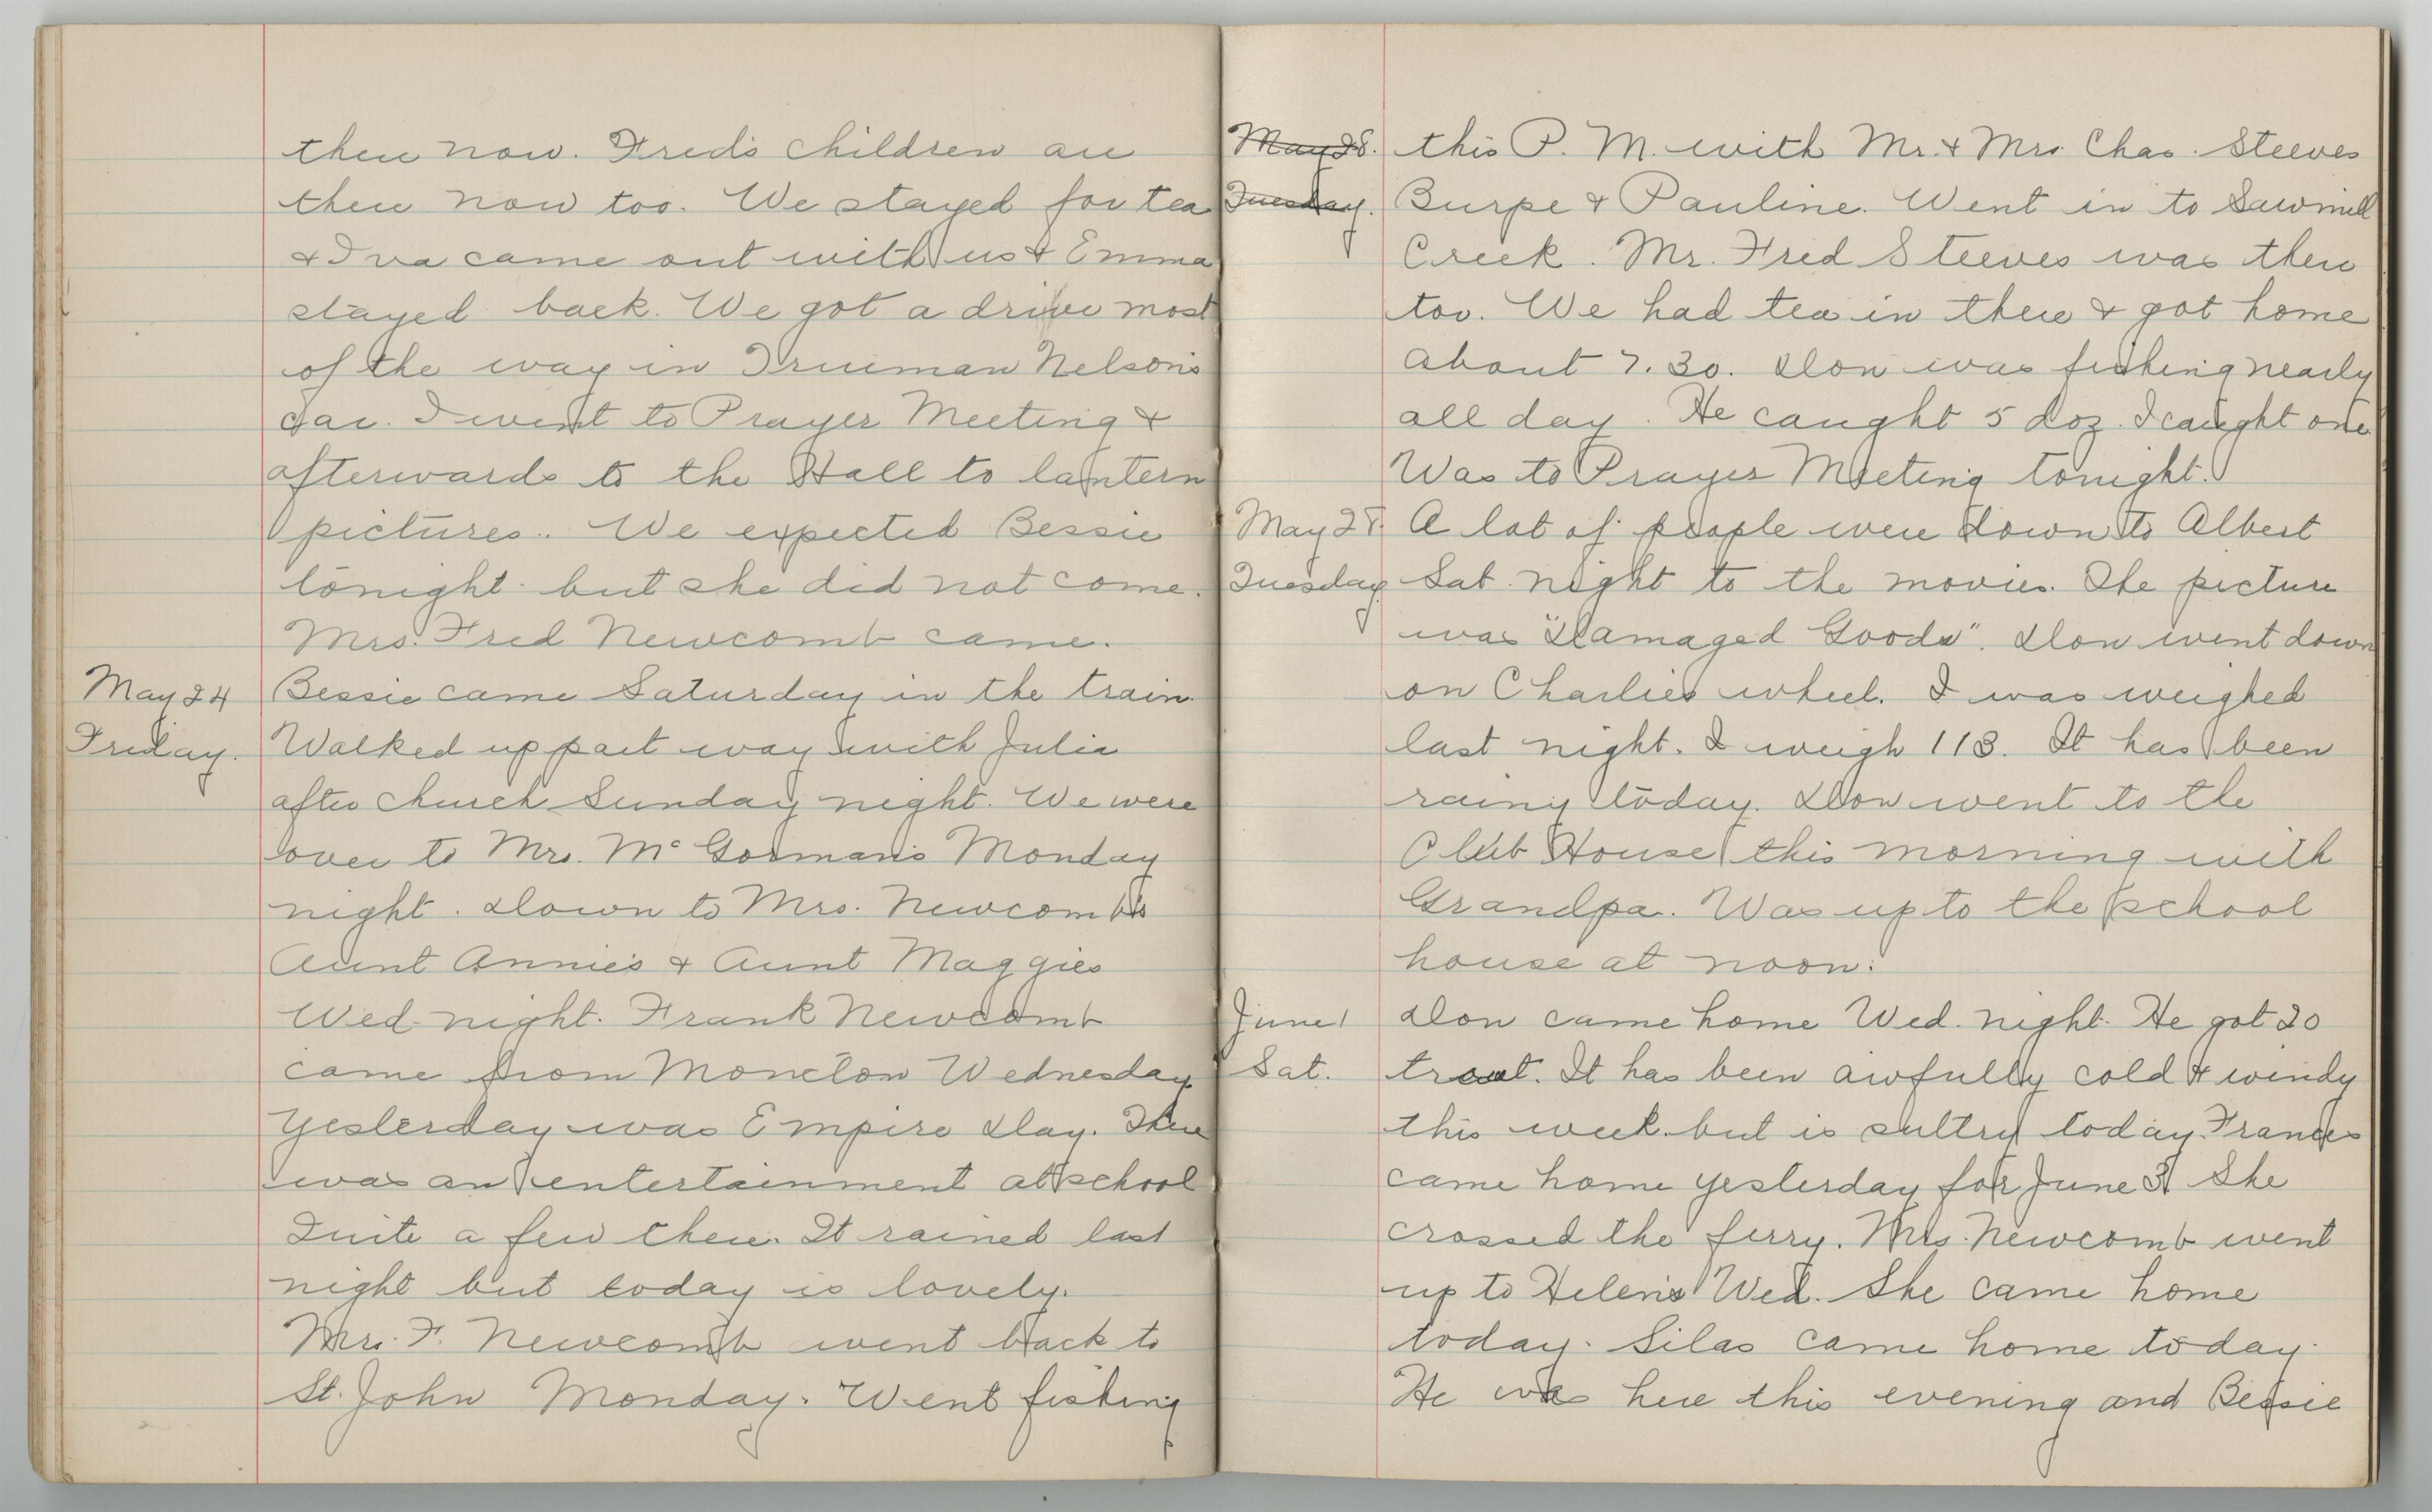 there now. Fred's children are
there now too. We stayed for tea
& Iva came out with us & Emma
stayed back. We got a drive most
of the way in Trueman Nelson's
car. I went to Prayer Meeting &
afterwards to the Hall to lantern
pictures. We expected Bessie
tonight but she did not come.
Mrs. Fred Newcomb came.
May 24 Bessie came Saturday in the train.
Friday. Walked up part way with Julia
after church Sunday night. We were
over to Mrs. McGorman's Monday
night. Down to Mrs. Newcomb's
Aunt Annie's & Aunt Maggies
Wed. night. Frank Newcomb
came from Moncton Wednesday
Yesterday was Empire Day. There
was an entertainment at school
Quite a few there. It rained last
night but today is lovely.
Mrs. F. Newcomb went back to
St. John Monday. Went fishing
May 28. this P. M. with Mr. & Mrs. Chas. Steeves
Tuesday. Burpe & Pauline. Went in to Sawmill
Creek. Mr. Fred Steeves was there
too. We had tea in there & got home
about 7.30. Don was fishing nearly
all day. He caught 5 doz. I caught one
Was to Prayer Meeting tonight.
May 28 A lot of people were down to Albert
Tuesday Sat. night to the movies. The picture
was "Damaged Goods". Don went down
on Charlies wheel. I was weighed
last night. I weigh 113. It has been
rainy today. Don went to the
Club House this morning with
Grandpa. Was up to the school
house at noon.
June 1 Don came home Wed. night. He got 20
Sat. trout. It has been awfully cold & windy
this week but is sultry today. Frances
came home yesterday for June 3. She
crossed the ferry. Mrs. Newcomb went
up to Helen's Wed. She came home
today. Silas came home today.
He was here this evening and Bessie